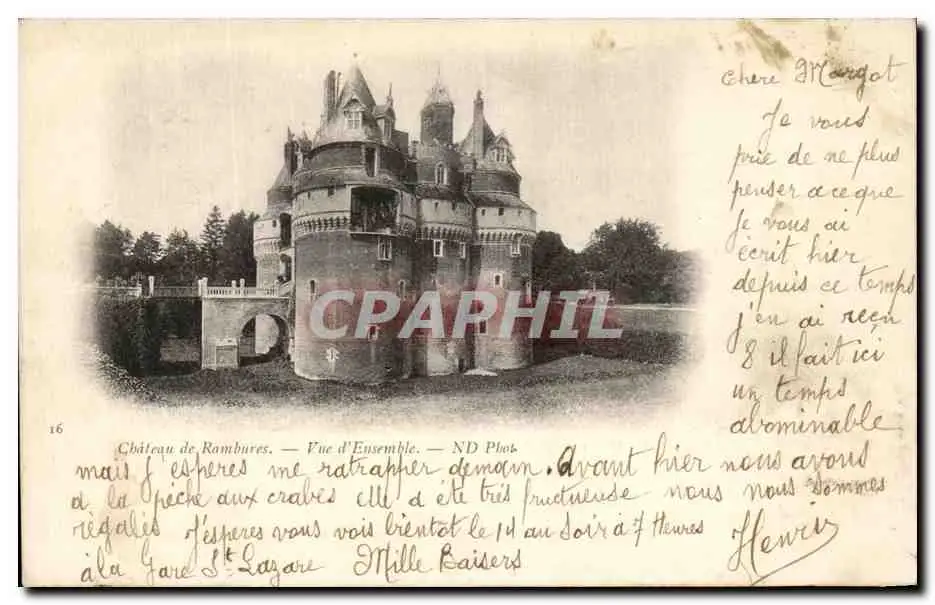 Chere Margot
Je vous
prie de ne plus
penser a ce que
Je vous ai
écrit hier
depuis ce temps
j'en ai reçu
8 il fait ici
un temps
abominable
CPAPHIL
16
Château de Rambures. — Vue d'Ensemble. — ND Phot.
mais J'esperes me ratrapper demain. Avant hier nous avons
a la peche aux crabes elle a été très fructueuse nous nous sommes
régalés J'esperes vous vois bientot le 14 au Soir à 7 Heures
à la Gare St. Lazare Mille Baisers
Henri